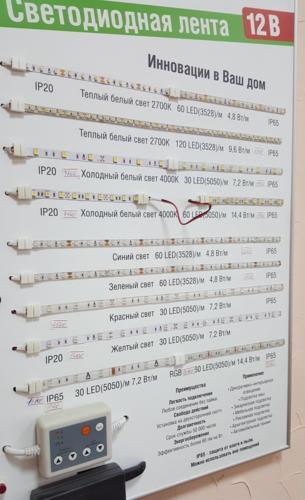 Светодиодная лента 12 В
Инновации в Ваш дом
IP20 Теплый белый свет 2700K 60 LED(3528)/м 4,8 Вт/м IP65
Теплый белый свет 2700K 120 LED(3528)/м 9,6 Вт/м IP65
IP20 Холодный белый свет 4000K 30 LED(5050)/м 7,2 Вт/м IP65
IP20 Холодный белый свет 4000K 60 LED(5050)/м 14,4 Вт/м IP65
Синий свет 60 LED(3528)/м 4,8 Вт/м IP65
Зеленый свет 60 LED(3528)/м 4,8 Вт/м IP65
Красный свет 30 LED(5050)/м 7,2 Вт/м IP65
IP20 Желтый свет 30 LED(5050)/м 7,2 Вт/м
IP65 30 LED(5050)/м 7,2 Вт/м RGB 30 LED(5050)/м 14,4 Вт/м IP65
Преимущества
Легкость подключения
Любое соединение без пайки
Свобода действий
Установка на двухсторонний скотч
Долговечность
Срок службы 50.000 часов
Энергосбережение
Эффективность более 80 лм на Вт
Применение
• Декоративно-интерьерное
освещение
• Подсветка ниш
• Мебельная подсветка
IP65 - защита от влаги и пыли.
Можно использовать вне помещений